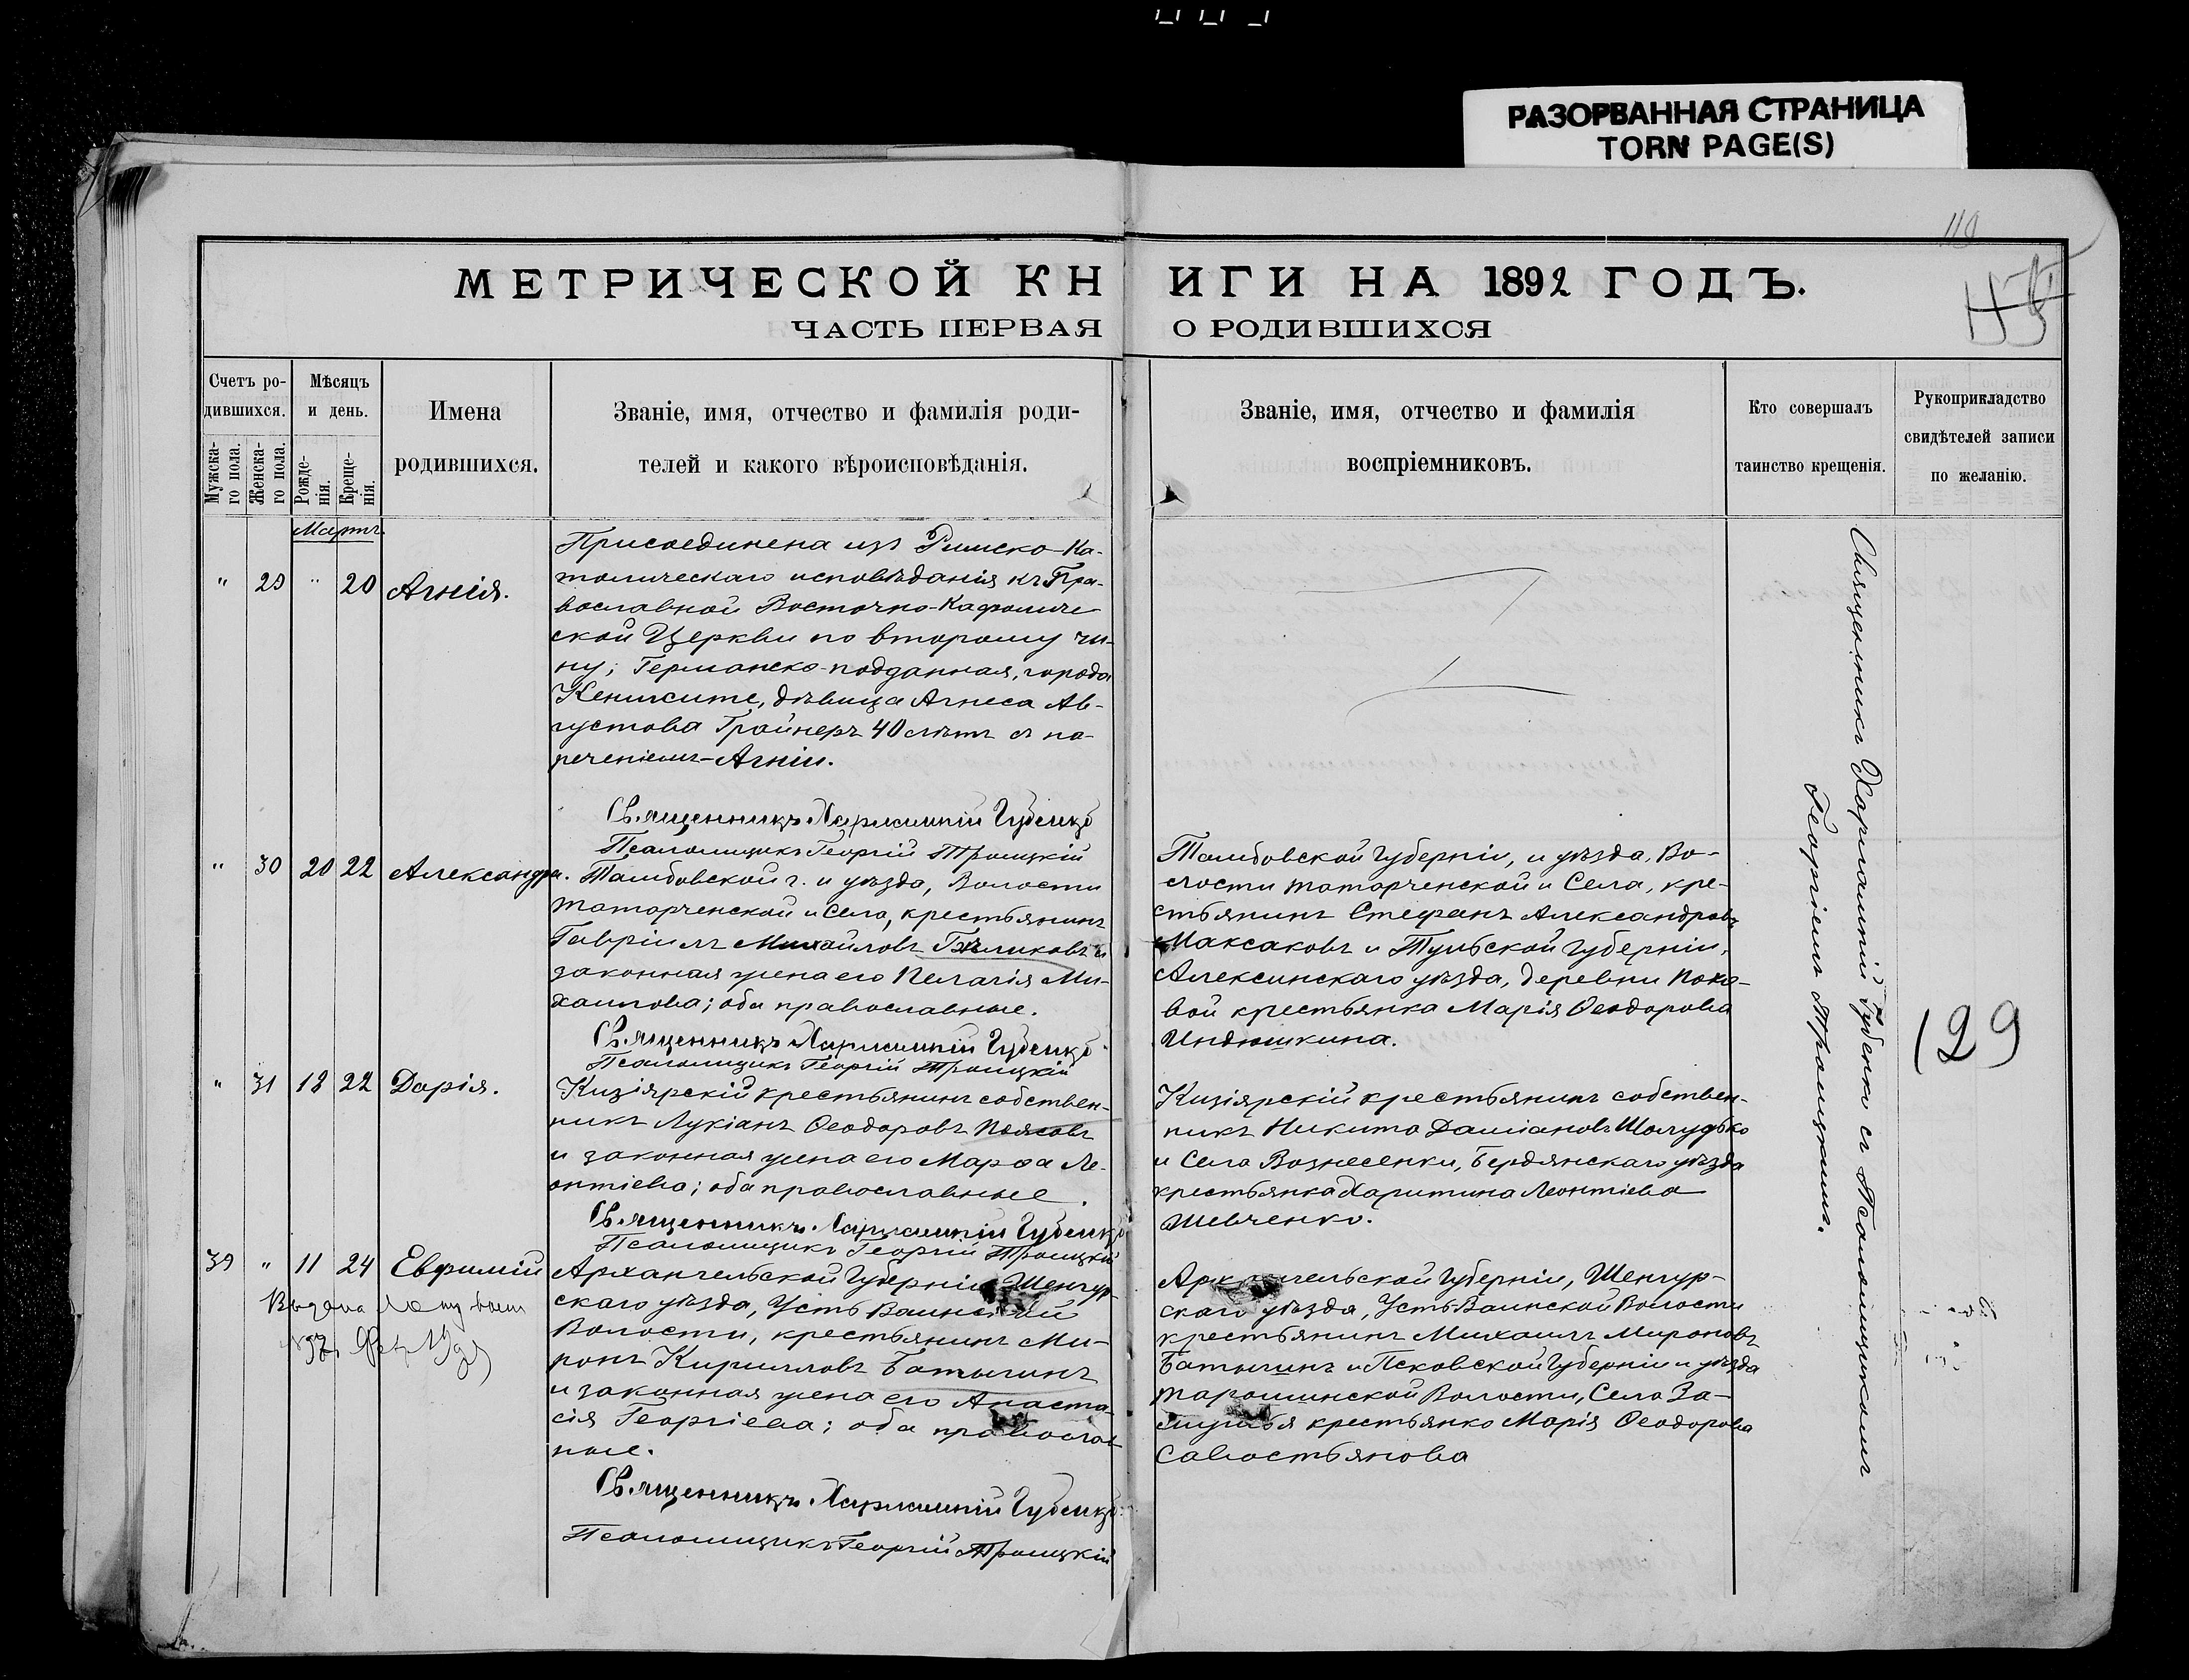 РАЗОРВАННАЯ СТРАНИЦА
TORN PAGE(S)
МЕТРИЧЕСКОЙ КНИГИ НА 1892 ГОДЪ.
ЧАСТЬ ПЕРВАЯ О РОДИВШИХСЯ
Счетъ ро-
дившихся.
Мужска-
го пола.
Женска-
го пола.
Мѣсяцъ
и день.
Рожде-
нія.
Креще-
нія.
Имена
родившихся.
Званіе, имя, отчество и фамилія роди-
телей и какого вѣроисповѣданія.
Званіе, имя, отчество и фамилія
воспріемниковъ.
Кто совершалъ
таинство крещенія.
Рукоприкладство
свидѣтелей записи
по желанію.
Мартъ
" 29 " 20 Агнія.
Присоединена изъ Римско-Ка-
толическаго исповѣданія къ Пра-
вославной Восточно-Каѳоличе
ской Церкви по второму чи-
ну; Германско-подданная, города
дѣвица Агнеса Ав-
густова Грайнеръ 40 лѣтъ съ на-
реченіемъ - Агніи.
Священникъ Харлампій Губенко
Псаломщикъ Георгій Троицкій
" 30 20 22 Александра.
Тамбовской г. и уѣзда, Волости
Татарченской и Села, крестьянинъ
Гавріилъ Михайловъ и
законная жена его Пелагія Ми-
хаилова; оба православные.
Священникъ Харлампій Губенко
Псаломщикъ Георгій Троицкій
Тамбовской Губерніи, и уѣзда, Во-
лости Татарченской и Села, кре-
стьянинъ Стефанъ Александровъ
Максаковъ и Тульской Губерніи,
Алексинскаго уѣзда, деревни
вой крестьянка Марія Ѳеодорова
Индюшкина.
" 31 18 22 Дарія.
Кизіярскій крестьянинъ собствен-
никъ Лукіанъ Ѳеодоровъ Поясовъ
и законная жена его Марѳа Ле-
онтіева; оба православные.
Священникъ Харлампій Губенко
Псаломщикъ Георгій Троицкій
Кизіярскій крестьянинъ собствен-
никъ Никита Даміановъ Шолудько
и Села Вознесенки, Бердянскаго уѣзда
крестьянка Харитина Леонтіева
Шевченко.
39 " 11 24 Евфимій
Архангельской Губерніи Шенкур-
скаго уѣзда, Усть Ваинской
Волости, крестьянинъ Ми-
ронъ Кирилловъ Батыгинъ
и законная жена его Анаста-
сія Георгіева; оба православ-
ные.
Священникъ Харлампій Губенко
Псаломщикъ Георгій Троицкій
Архангельской Губерніи, Шенкур-
скаго уѣзда, Усть-Ваинской Волости
крестьянинъ Михаилъ Мироновъ
Батыгинъ и Псковской Губерніи и уѣзда
Волости, Села За-
крестьянка Марія Ѳеодорова
Савостьянова
Священникъ Харлампій Губенко съ Псаломщикомъ
Георгіемъ Троицкимъ.
129